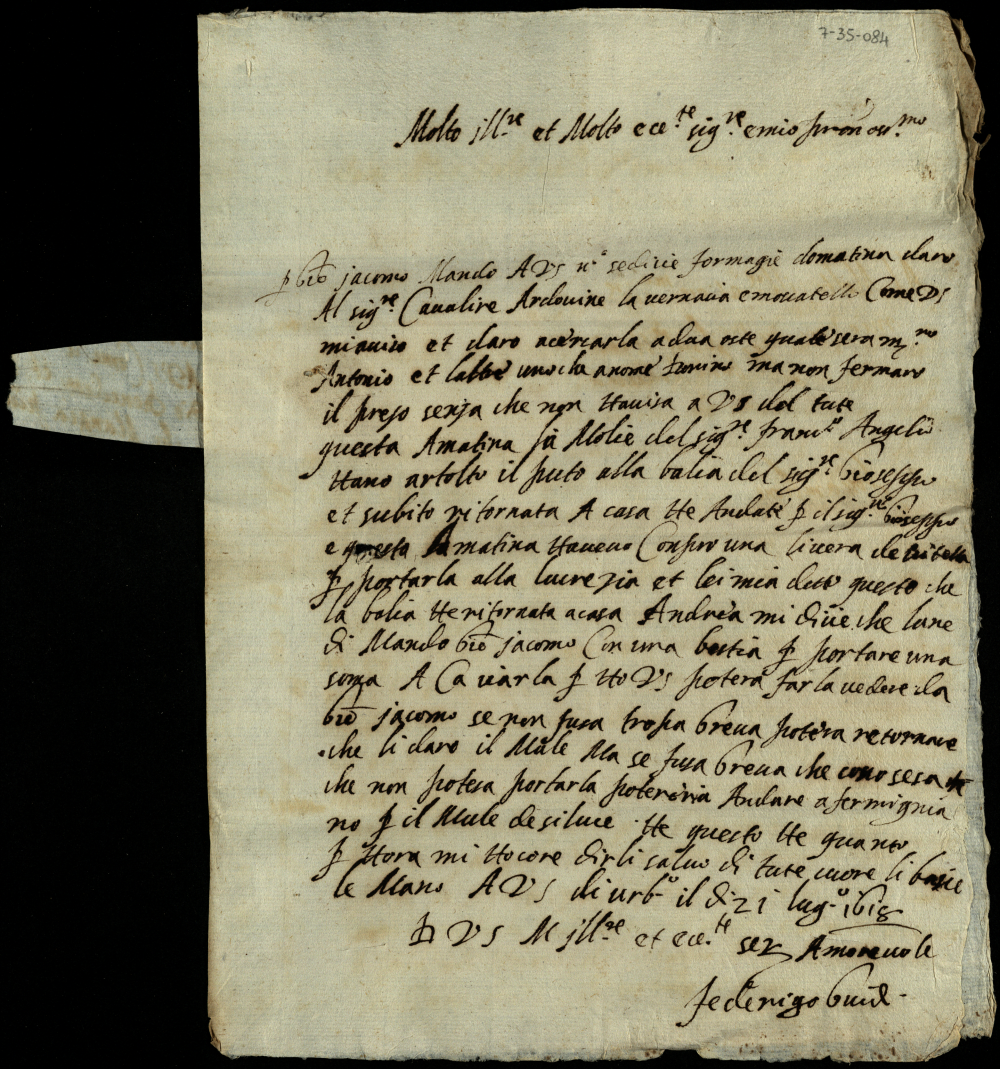 7-35-084
Molto ill.re et Molto ece.te sig.re e mio pron oss.mo
p Gio jacomo Mando A VS n.o sedicie formagie domatina daro
Al sig.re Cavalire Ardovine la vernacia e moscatello Come VS
mi aviso et daro acercarla a dua oste quale sera m.ro
Antonio et laltre uno che a nome tonino ma non fermaro
il preso senza che non Havisa a VS del tute
questa Amatina la Molie del sig.re franc.o Angelo
Hano artolto il puto alla balia del sig.re Gioseppo
et subito ritornata A casa He Andate p il sig.re Gioseppo
e questa matina Havevo Conpro una livera de vitella
p portarla alla lucrezia et lei mia deto questo che
la balia He ritornata a casa Andrea mi dicie che lune
di Mando Gio jacomo Con una bestia p portare una
soma A Ca viarla p Ho VS potera farla vedere da
Gio jacomo se non fusa tropa greva potera retornare
che li daro il Mule Ma se fusa greva che conosesa
che non potesa portarla Andare a fermignia
no p il Mule de siluce He questo He quanto
p Hora mi Hocore dirli salvo di tute cuore li bacie
le Mano A VS di urb.o il di 21 lug.o 1618
D VS M ill.re et ece.te ser Amorevole
federigo Guid.